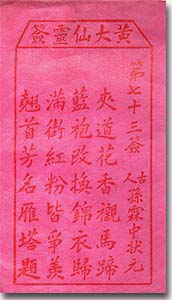 黃大仙靈簽
第七十三簽 古人 孫霖中狀元
夾道花香襯馬蹄
藍袍改換錦衣歸
滿街紅粉皆爭羨
翹首芳名雁塔題